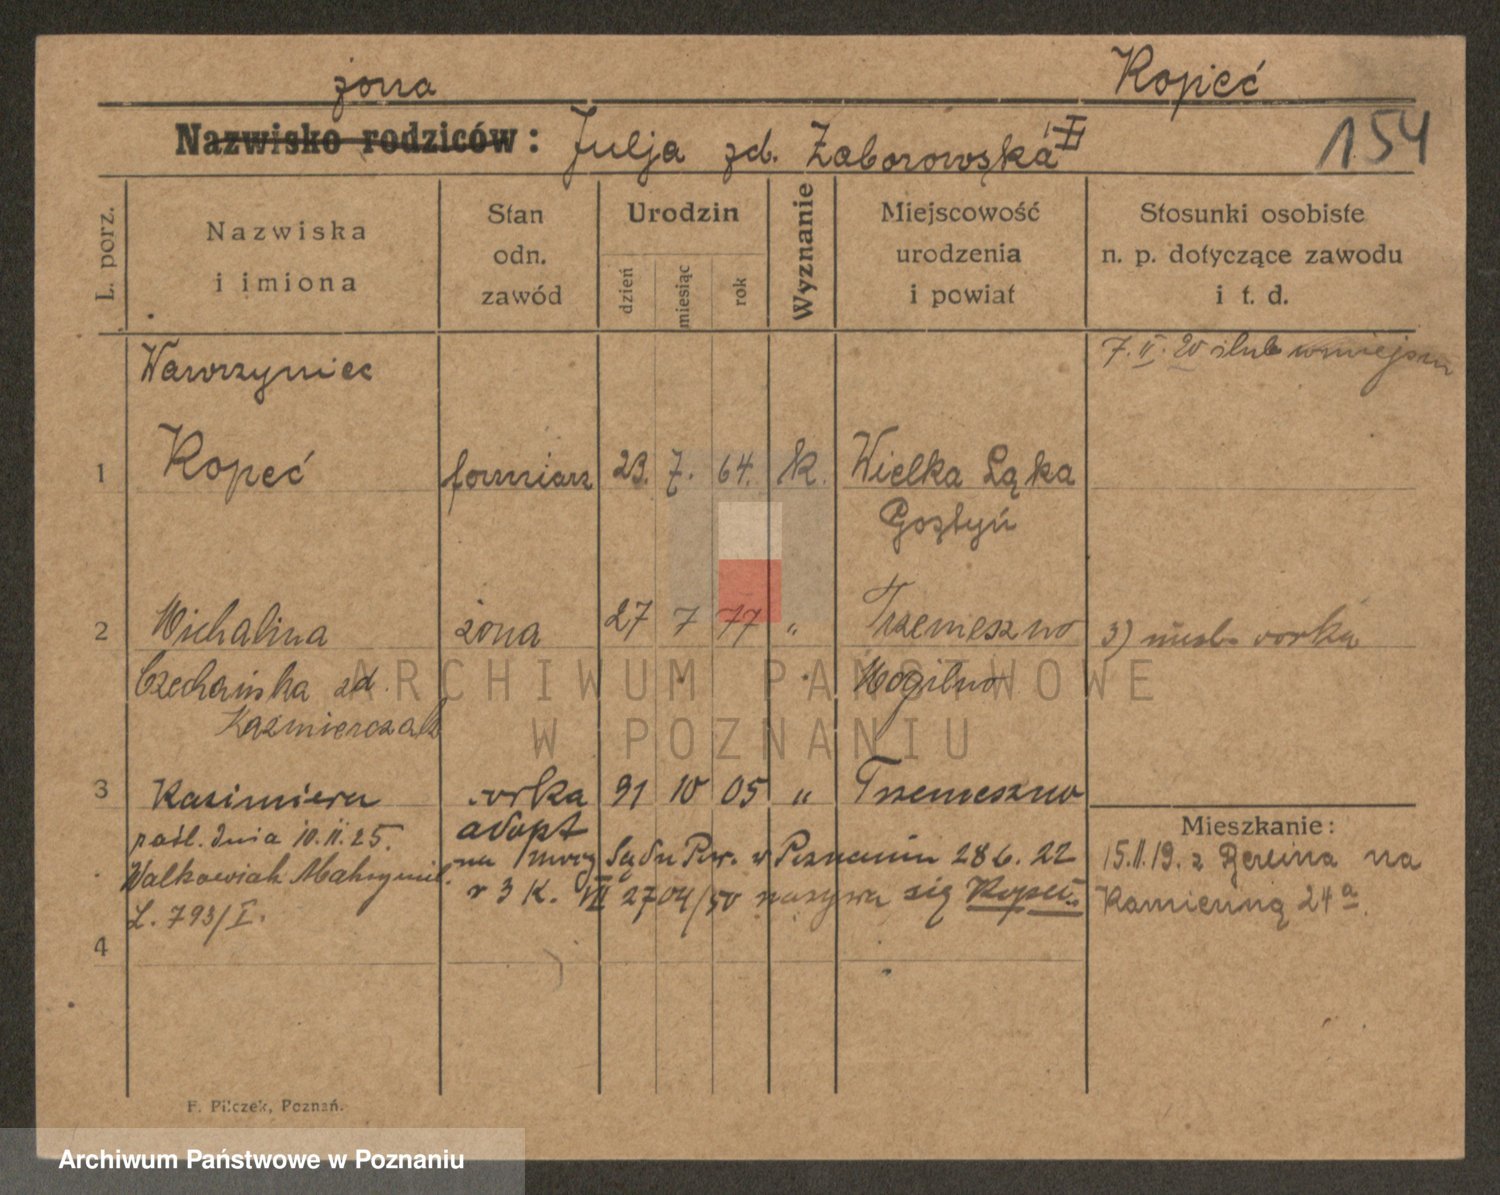 żona Kopieć
Nazwisko rodziców: Julja zd. Zaborowska I
154
L. porz.
Nazwiska
i imiona
Stan
odn.
zawód
Urodzin
dzień
miesiąc
rok
Wyznanie
Miejscowość
urodzenia
i powiat
Stosunki osobiste
n. p. dotyczące zawodu
i t. d.
Wawrzyniec
7. II. 20 ślub
1 Kopeć formiarz 23. 7. 64. k. Wielka Łąka
Gostyń
2 Michalina żona 27 7 77 " Trzemeszno
3) córka
Czechańska zd. Mogilno
Kaźmierczak
3 Kazimiera córka 10 05 " Trzemeszno
adopt
pośl. dnia 10.II.25.
na mocy Sądu Pow. w Poznaniu 28 6. 22
Walkowiak Maksymil.
r 3 K. VII 2704/50 nazywa się Kopeć
L. 793/I.
4
Mieszkanie:
15.11.19. z Berlina na
Kamienną 24a
F. Pilczek, Poznań.
ARCHIWUM PAŃSTWOWE
W POZNANIU
Archiwum Państwowe w Poznaniu